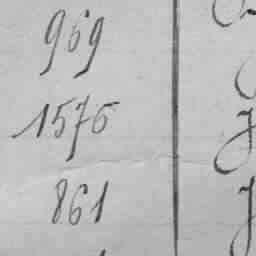 969
1576
861